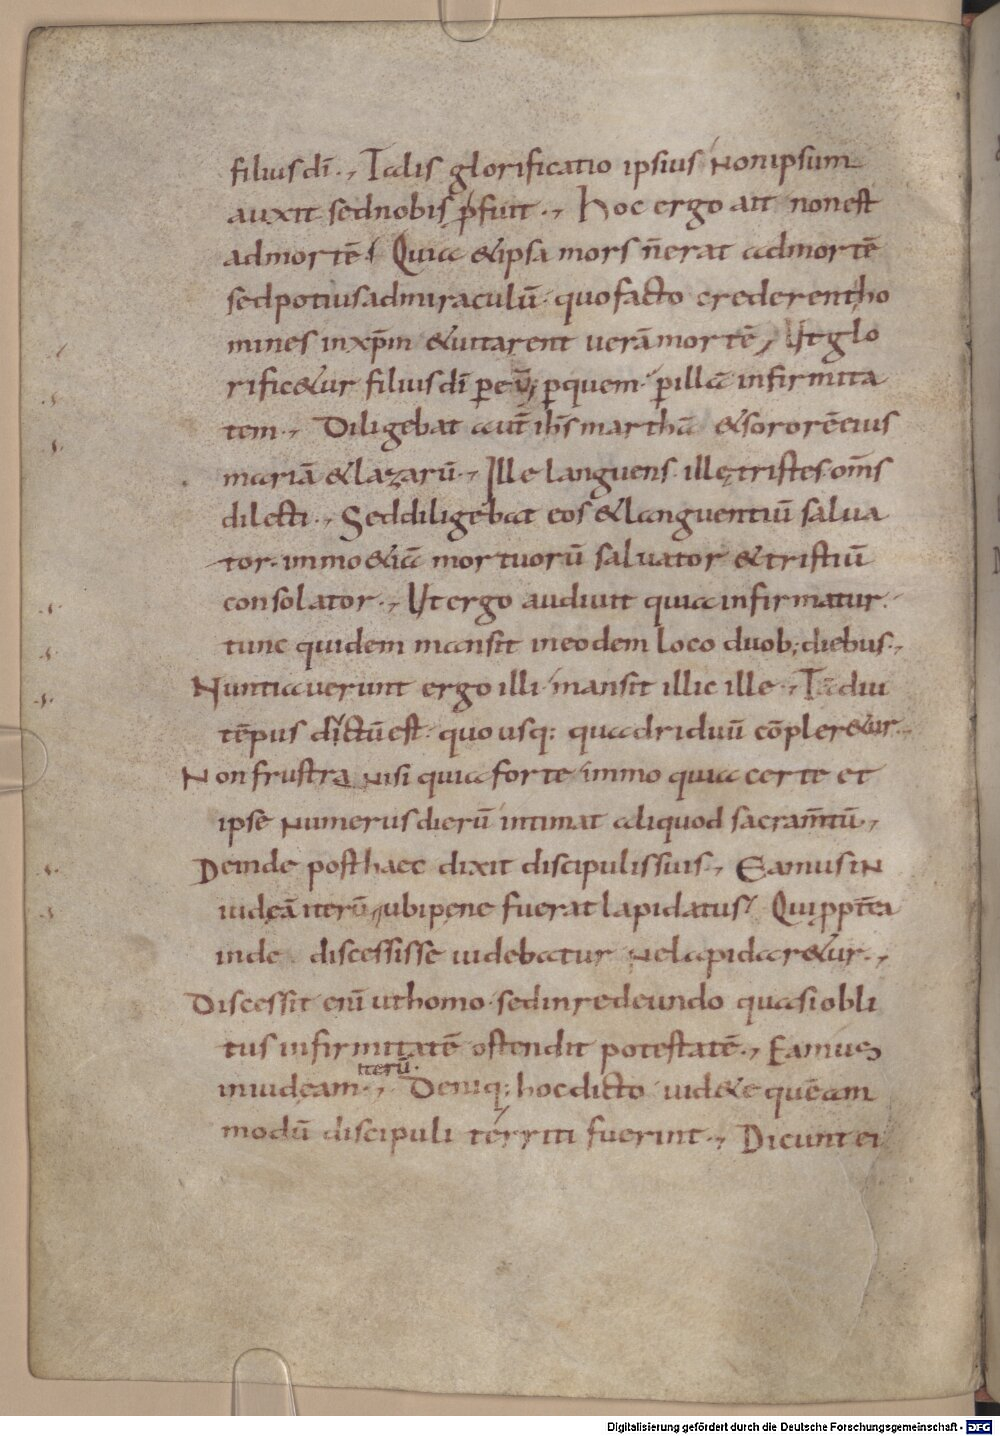 filius dī ., Talis glorificatio ipsius non ipsum
auxit sed nobis p̄fuit ., Hoc ergo ait non est
ad mortē; Quia & ipsa mors n̄ erat ad mortē
sed potius ad miraculū · quo facto crederent ho
mines in xp̄m & uitarent uerā mortē, Ut glo
rific&ur filius dī per eū; per quem · per illā infirmita
tem ., Diligebat aut̄ ih̄s marthā & sororē eius
mariā & lazarū ., Ille languens · illę tristes · om̄s
dilecti ., Sed diligebat eos & languentiū salua
tor · immo &iā mortuorū saluator & tristiū
consolator ., Ut ergo audiuit quia infirmatur ·
tunc quidem mansit in eodem loco duob; diebus .,
Nuntiauerunt ergo illi · mansit illic ille ., Tādiu
tēpus dictū est · quo usq; quadriduū cōpler&ur .,
Non frustra nisi quia forte immo quia certe et
ipse numerus dierū intimat aliquod sacram̄tū .,
Deinde post haec dixit discipulis suis ., Eamus in
iudęā iterū, ubi pęne fuerat lapidatus; Qui ppt̄ea
inde discessisse uidebatur ne lapidar&ur .,
Discessit eni ut homo · sed in redeundo quasi obli
tus infirmitatē ostendit potestatē ., Eamus
iterū ·
in iudęam ., Deniq; hoc dicto uid&e quēam
modū discipuli territi fuerint ., Dicunt ei
Digitalisierung gefördert durch die Deutsche Forschungsgemeinschaft - DFG